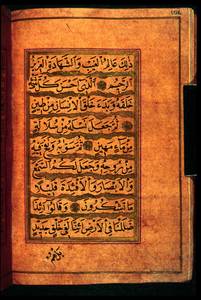 ذَٰلِكَ عَالِمُ الْغَيْبِ وَالشَّهَادَةِ الْعَزِيزُ
الرَّحِيمُ الَّذِي أَحْسَنَ كُلَّ شَيْءٍ
خَلَقَهُ وَبَدَأَ خَلْقَ الْإِنْسَانِ مِنْ طِينٍ
ثُمَّ جَعَلَ نَسْلَهُ مِنْ سُلَالَةٍ
مِنْ مَاءٍ مَهِينٍ ثُمَّ سَوَّاهُ وَنَفَخَ فِيهِ
مِنْ رُوحِهِ وَجَعَلَ لَكُمُ السَّمْعَ
وَالْأَبْصَارَ وَالْأَفْئِدَةَ قَلِيلًا
مَا تَشْكُرُونَ وَقَالُوا أَئِذَا
ضَلَلْنَا فِي الْأَرْضِ أَئِنَّا لَفِي خَلْقٍ جَدِيدٍ
بل هم